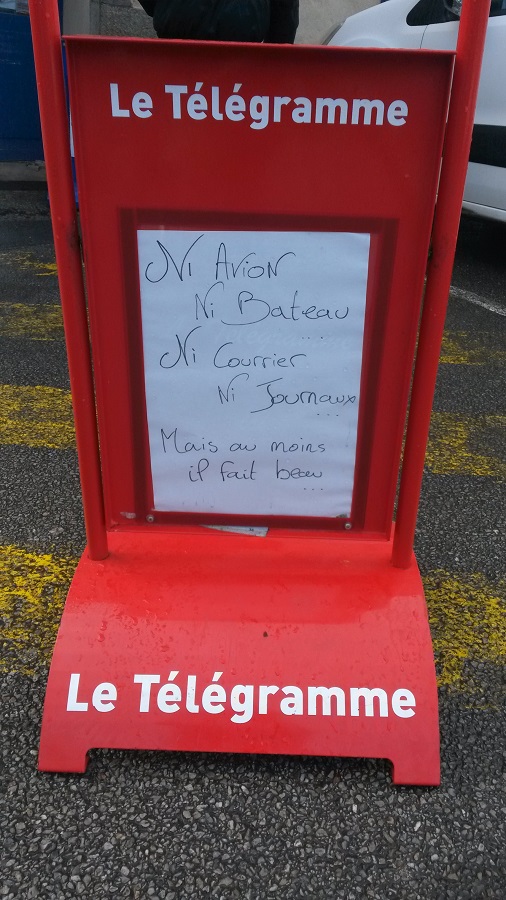 Le Télégramme
Ni Avion
Ni Bateau
...
Ni Courrier
Ni Journaux
...
Mais au moins
il fait beau
...
Le Télégramme